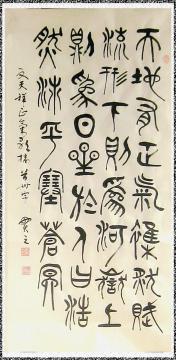 天地有正氣雜然賦
流形下則為河嶽上
則為日星於人曰浩
然沛乎塞蒼冥
文天祥正氣歌 卅字